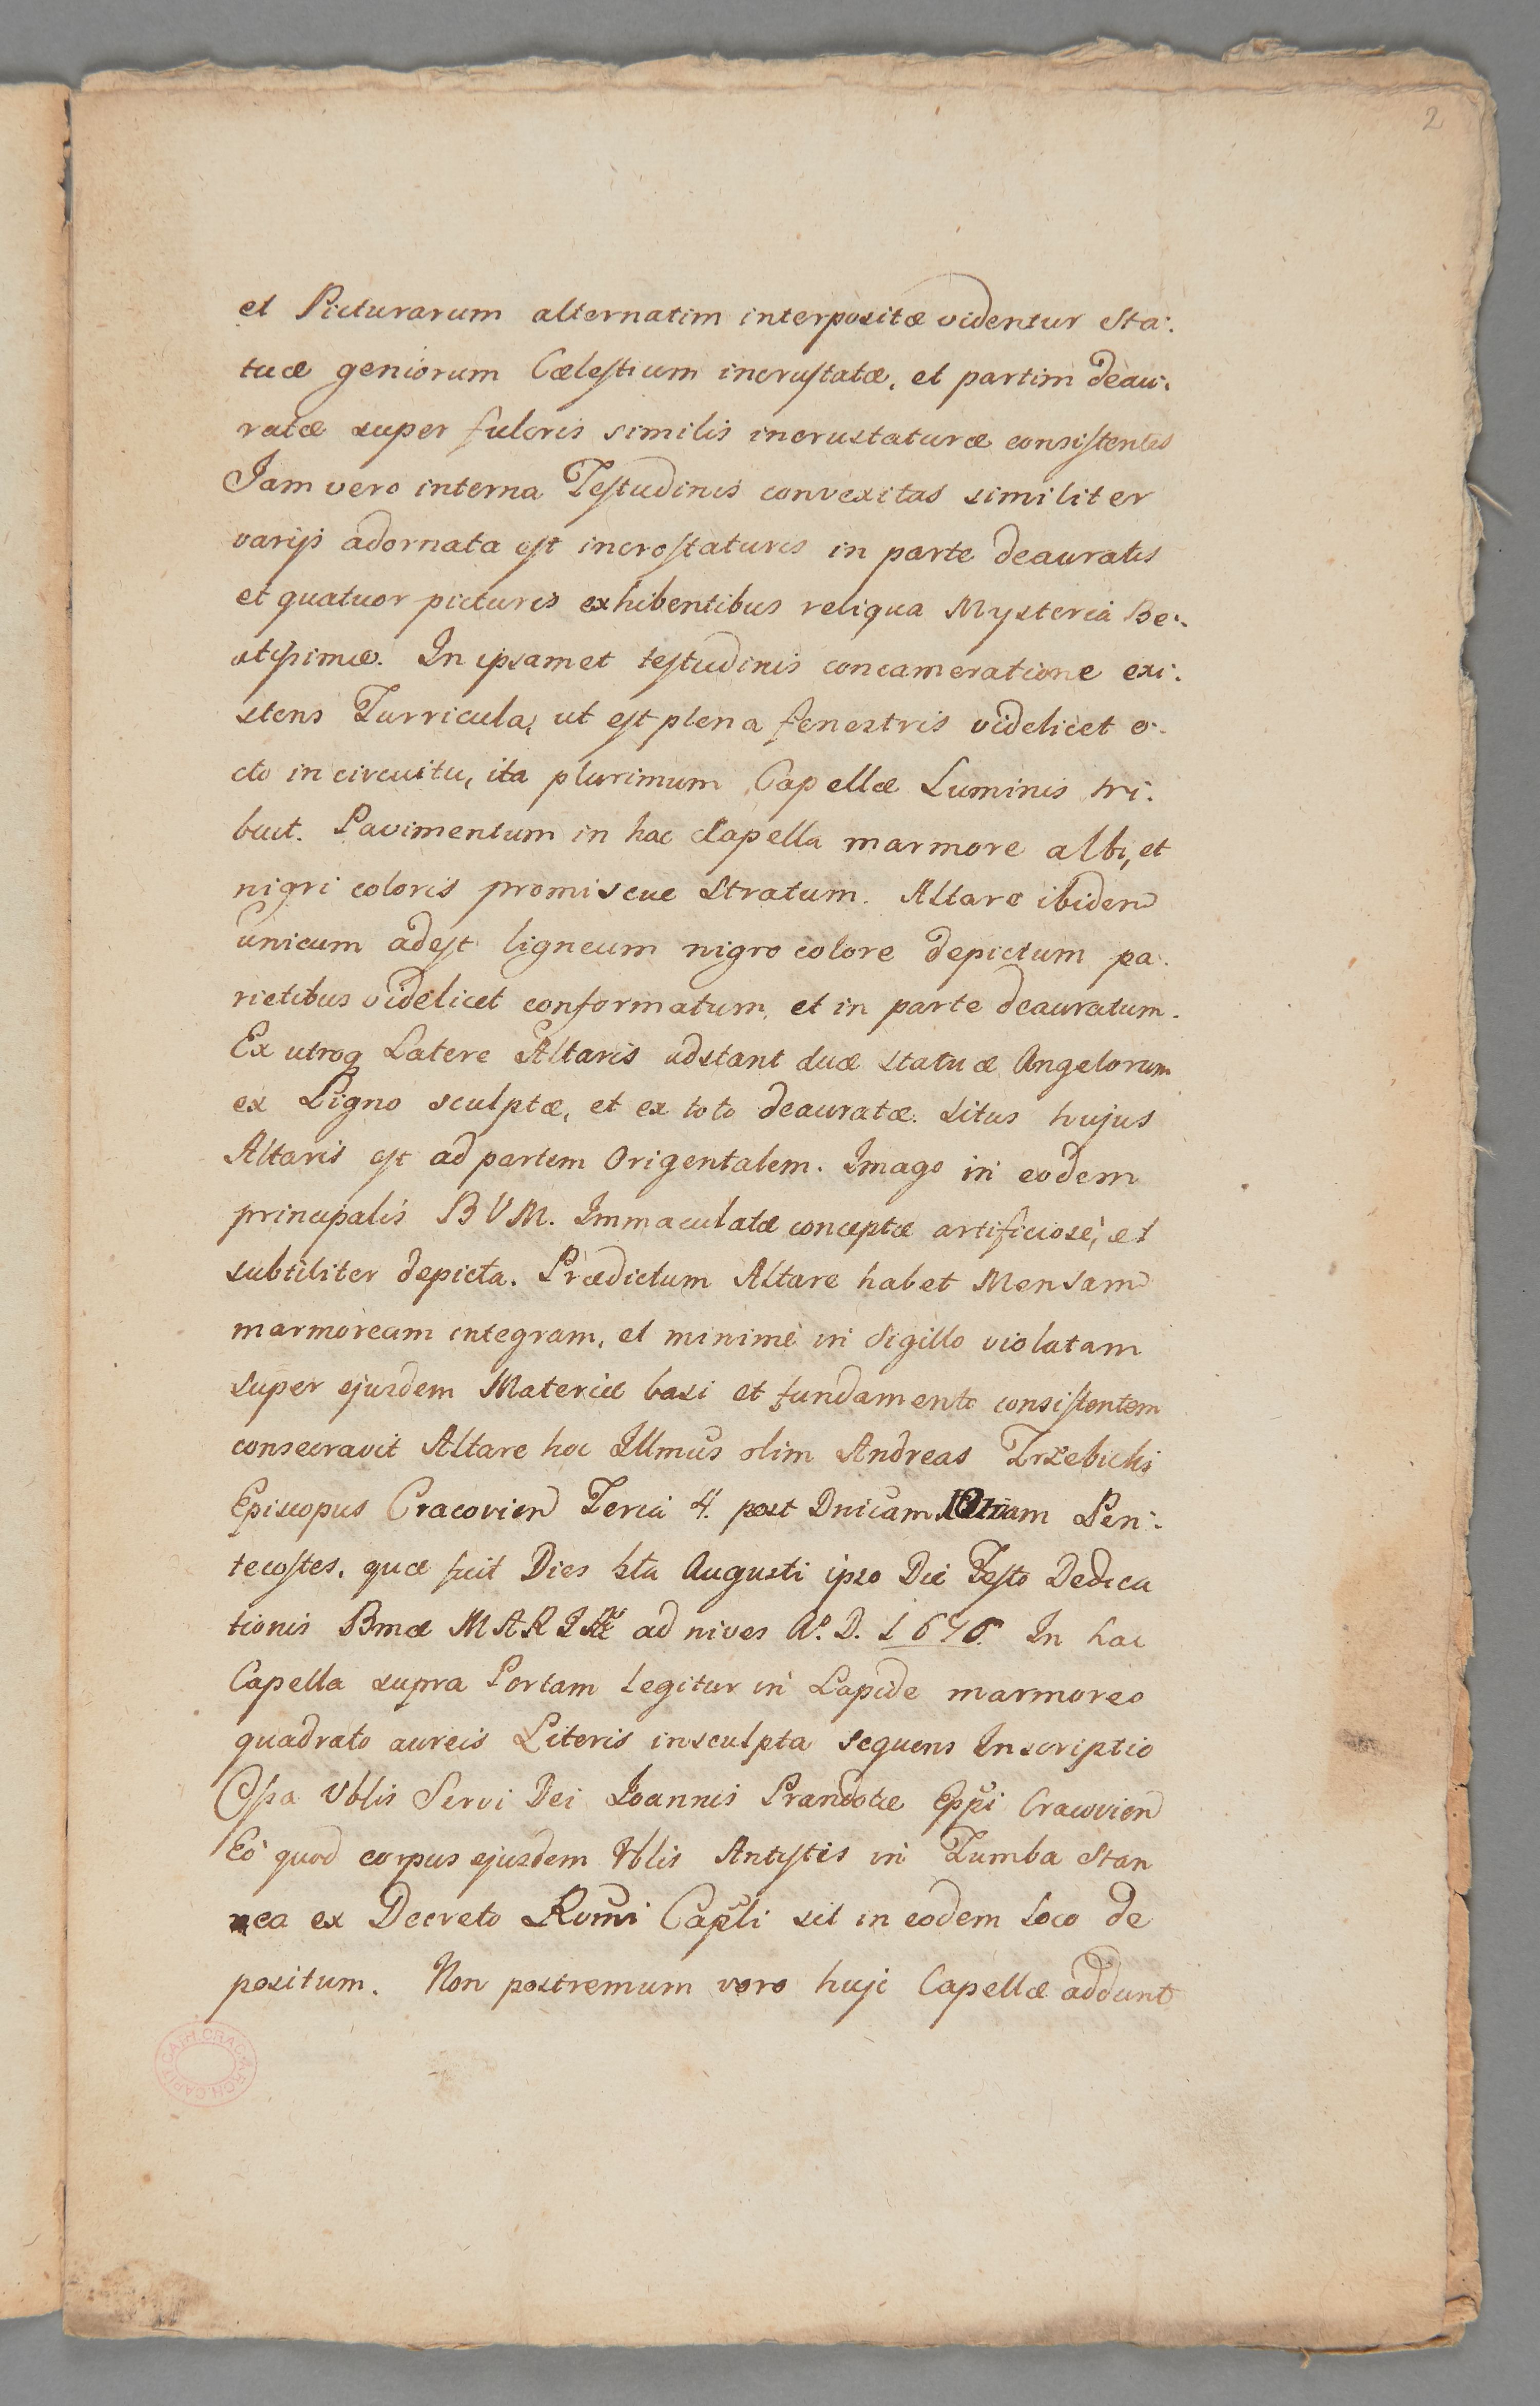 2
et Picturarum alternatim interpositæ videntur sta:
tuæ geniorum Cælestium incrustatæ, et partim deau:
ratæ super fulcris similis incrustaturæ consistentes
Jam vero interna Testudinis convexitas similiter
varijs adornata est incrostaturis in parte deauratis
et quatuor picturis exhibentibus reliqua Mysteria Be:
atissimæ. In ipsamet testudinis concameratione exi:
stens Turricula, ut est plena fenestris videlicet o:
cto in circuitu, ita plurimum Capellæ Luminis tri:
buit. Pavimentum in hac Capella marmore albi, et
nigri coloris promiscue stratum. Altare ibidem
unicum adest ligneum nigro colore depictum pa:
rietibus videlicet conformatum, et in parte deauratum.
Ex utroq Latere Altaris adstant duæ statuæ Angelorum
ex Ligno sculptæ, et ex toto deauratæ. Situs hujus
Altaris est ad partem Origentalem. Imago in eodem
principalis BVM. Immaculatæ conceptæ artificiosè, et
subtiliter depicta. Prædictum Altare habet Mensam
marmoream integram, et minimè in Sigillo violatam
super ejusdem Materiæ basi et fundamento consistentem
consecravit Altare hoc Illmus olim Andreas Trzebicki
Episcopus Cracovien Feria 4. post Dnicam 10mam Pen:
tecostes, quæ fuit Dies 5ta Augusti ipso Die Festo Dedica
tionis Bmæ MARIÆ ad nives Aº. D. 1676. In hac
Capella supra Portam legitur in Lapide marmoreo
quadrato aureis Literis insculpta sequens Inscriptio
Ossa Vblis Servi Dei Joannis Prandotæ Eppi Cracovien
Eò quod corpus ejusdem Vblis Antystis in Tumba Stan
nea ex Decreto Rvmi Capli sit in eodem loco de
positum. Non postremum vero huji Capellæ addunt